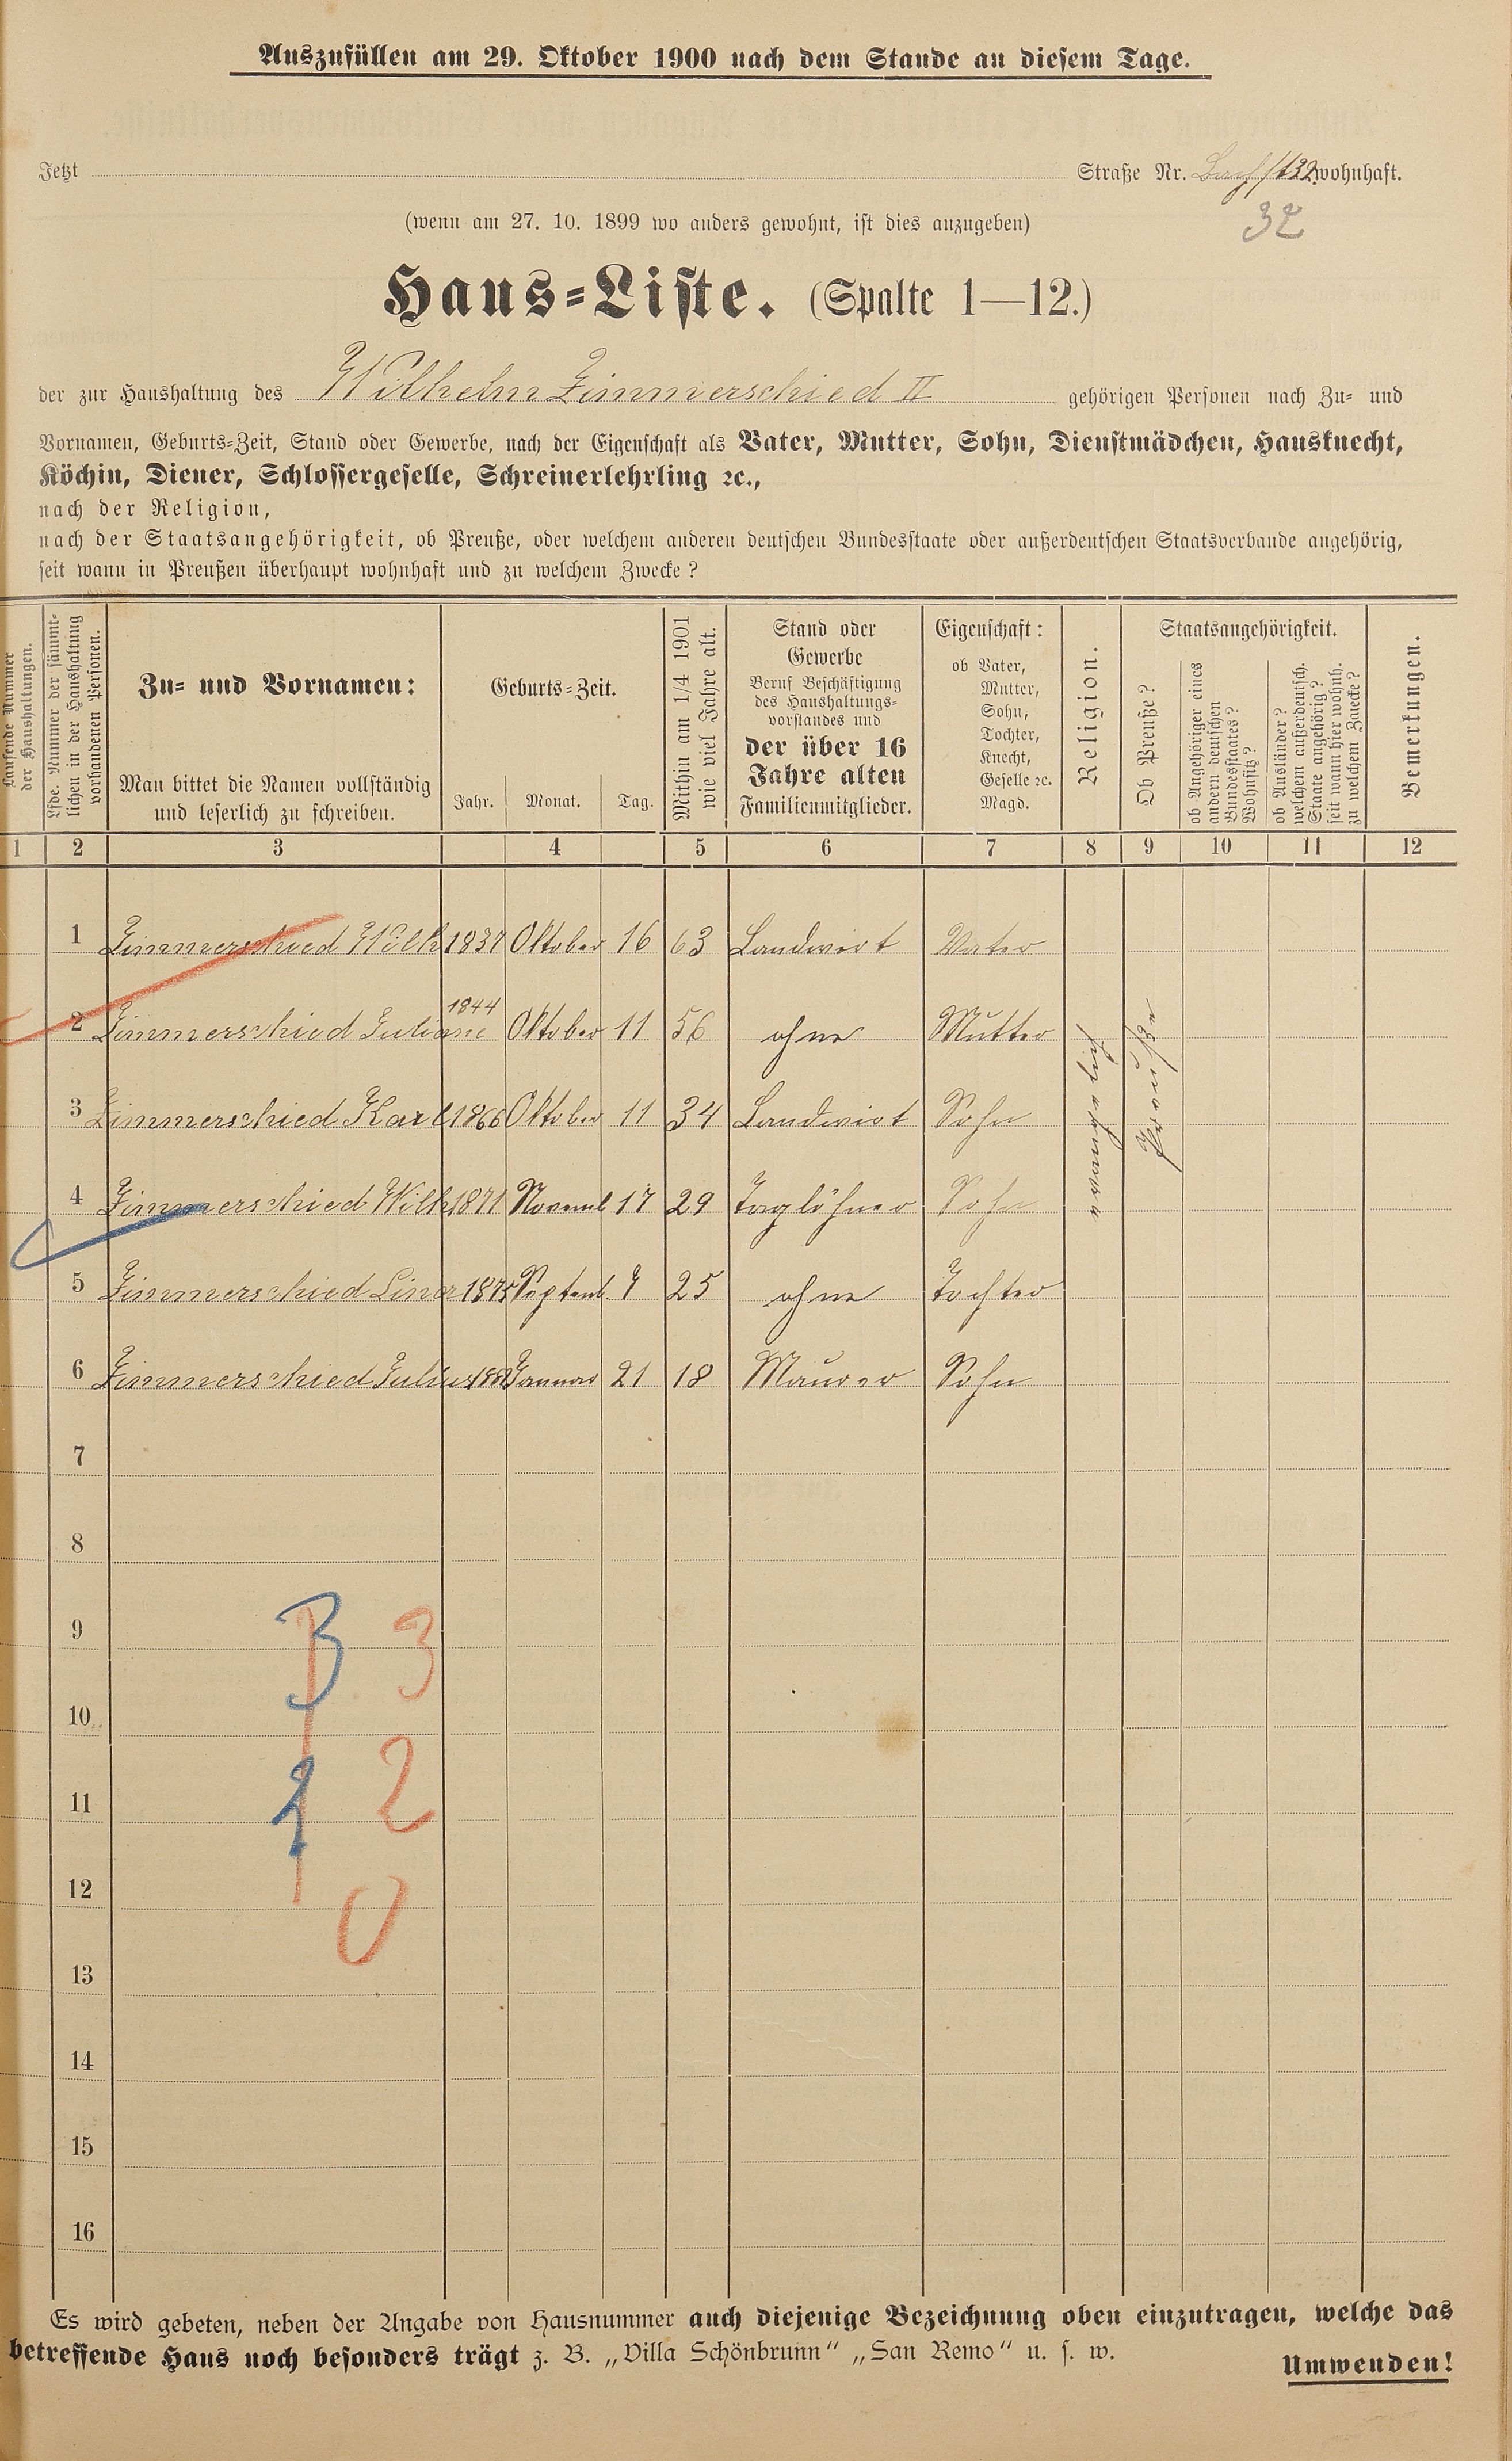 Auszufüllen am 29. Oktober 1900 nach dem Stande an diesem Tage.
Jetzt Straße Nr. 132 wohnhaft.
(wenn am 27. 10. 1899 wo anders gewohnt, ist dies anzugeben)
32
Haus-Liste. (Spalte 1—12.)
der zur Haushaltung des Wilhelm Zimmerschied II gehörigen Personen nach Zu- und
Vornamen, Geburts-Zeit, Stand oder Gewerbe, nach der Eigenschaft als Vater, Mutter, Sohn, Dienstmädchen, Hausknecht,
Köchin, Diener, Schlossergeselle, Schreinerlehrling ꝛc.,
nach der Religion,
nach der Staatsangehörigkeit, ob Preuße, oder welchem anderen deutschen Bundesstaate oder außerdeutschen Staatsverbande angehörig,
seit wann in Preußen überhaupt wohnhaft und zu welchem Zwecke?
Laufende Nummer
der Haushaltungen.
Lfde. Nummer der sämmt-
lichen in der Haushaltung
vorhandenen Personen.
Zu- und Vornamen:
Man bittet die Namen vollständig
und leserlich zu schreiben.
Geburts-Zeit.
Jahr. Monat. Tag.
Mithin am 1/4 1901
wie viel Jahre alt.
Stand oder
Gewerbe
Beruf Beschäftigung
des Haushaltungs-
vorstandes und
der über 16
Jahre alten
Familienmitglieder.
Eigenschaft:
ob Vater,
Mutter,
Sohn,
Tochter,
Knecht,
Geselle ꝛc.
Magd.
Religion.
Staatsangehörigkeit.
Ob Preuße?
ob Angehöriger eines
andern deutschen
Bundesstaates?
Wohnsitz?
ob Ausländer?
welchem außerdeutsch.
Staate angehörig?
seit wann hier wohnh.
zu welchem Zwecke?
Bemerkungen.
1 2 3 4 5 6 7 8 9 10 11 12
1 Zimmerschied Wilh 1837 Oktober 16 63 Landwirt Vater
2 Zimmerschied Juliane 1844 Oktober 11 56 ohne Mutter
3 Zimmerschied Karl 1866 Oktober 11 34 Landwirt Sohn
4 Zimmerschied Wilh 1871 Novemb 17 29 Taglöhner Sohn
5 Zimmerschied Lina 1875 Septemb 7 25 ohne Tochter
6 Zimmerschied Julius 1882 Januar 21 18 Maurer Sohn
Preuße
7
8
9
10
11
12
13
14
15
16
3 3
1 2
0
Es wird gebeten, neben der Angabe von Hausnummer auch diejenige Bezeichnung oben einzutragen, welche das
betreffende Haus noch besonders trägt z. B. „Villa Schönbrunn“ „San Remo“ u. s. w.
Umwenden!